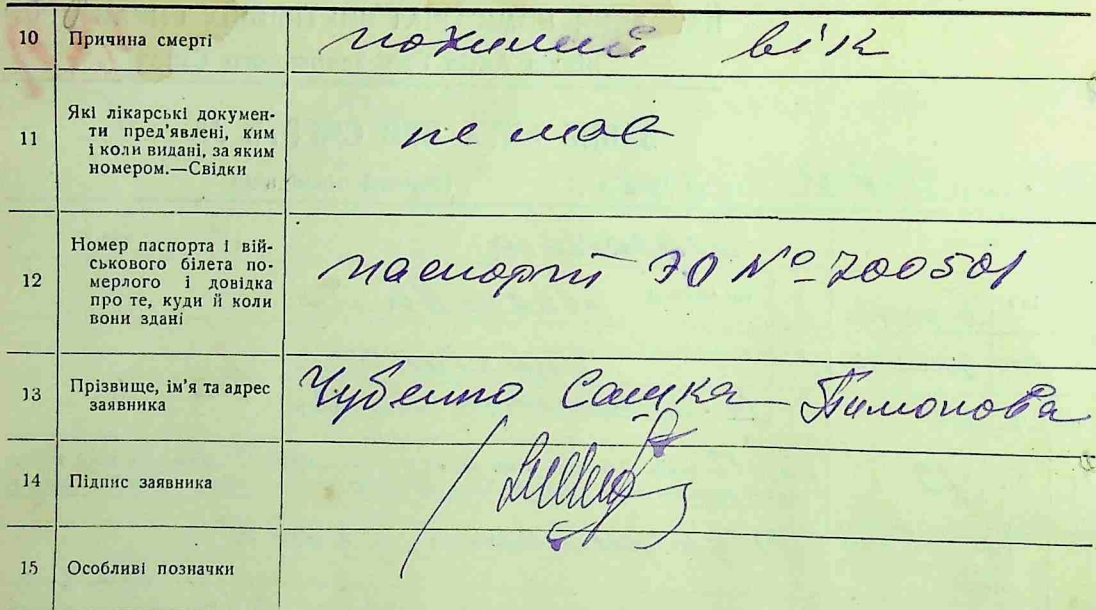 10 Причина смерті похилий вік
11 Які лікарські докумен-
ти пред'явлені, ким
і коли видані, за яким
номером.—Свідки
не мав
12 Номер паспорта і вій-
ськового білета по-
мерлого і довідка
про те, куди й коли
вони здані
паспорт ЭО № 700501
13 Прізвище, ім'я та адрес
заявника
Сашка Тимонова
14 Підпис заявника
15 Особливі позначки